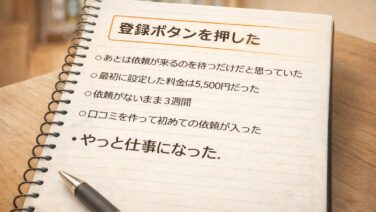 登録ボタンを押した
○あとは依頼が来るのを待つだけだと思っていた
○最初に設定した料金は5,500円だった
○依頼がないまま3週間
○口コミを作って初めての依頼が入った
・やっと仕事になった.